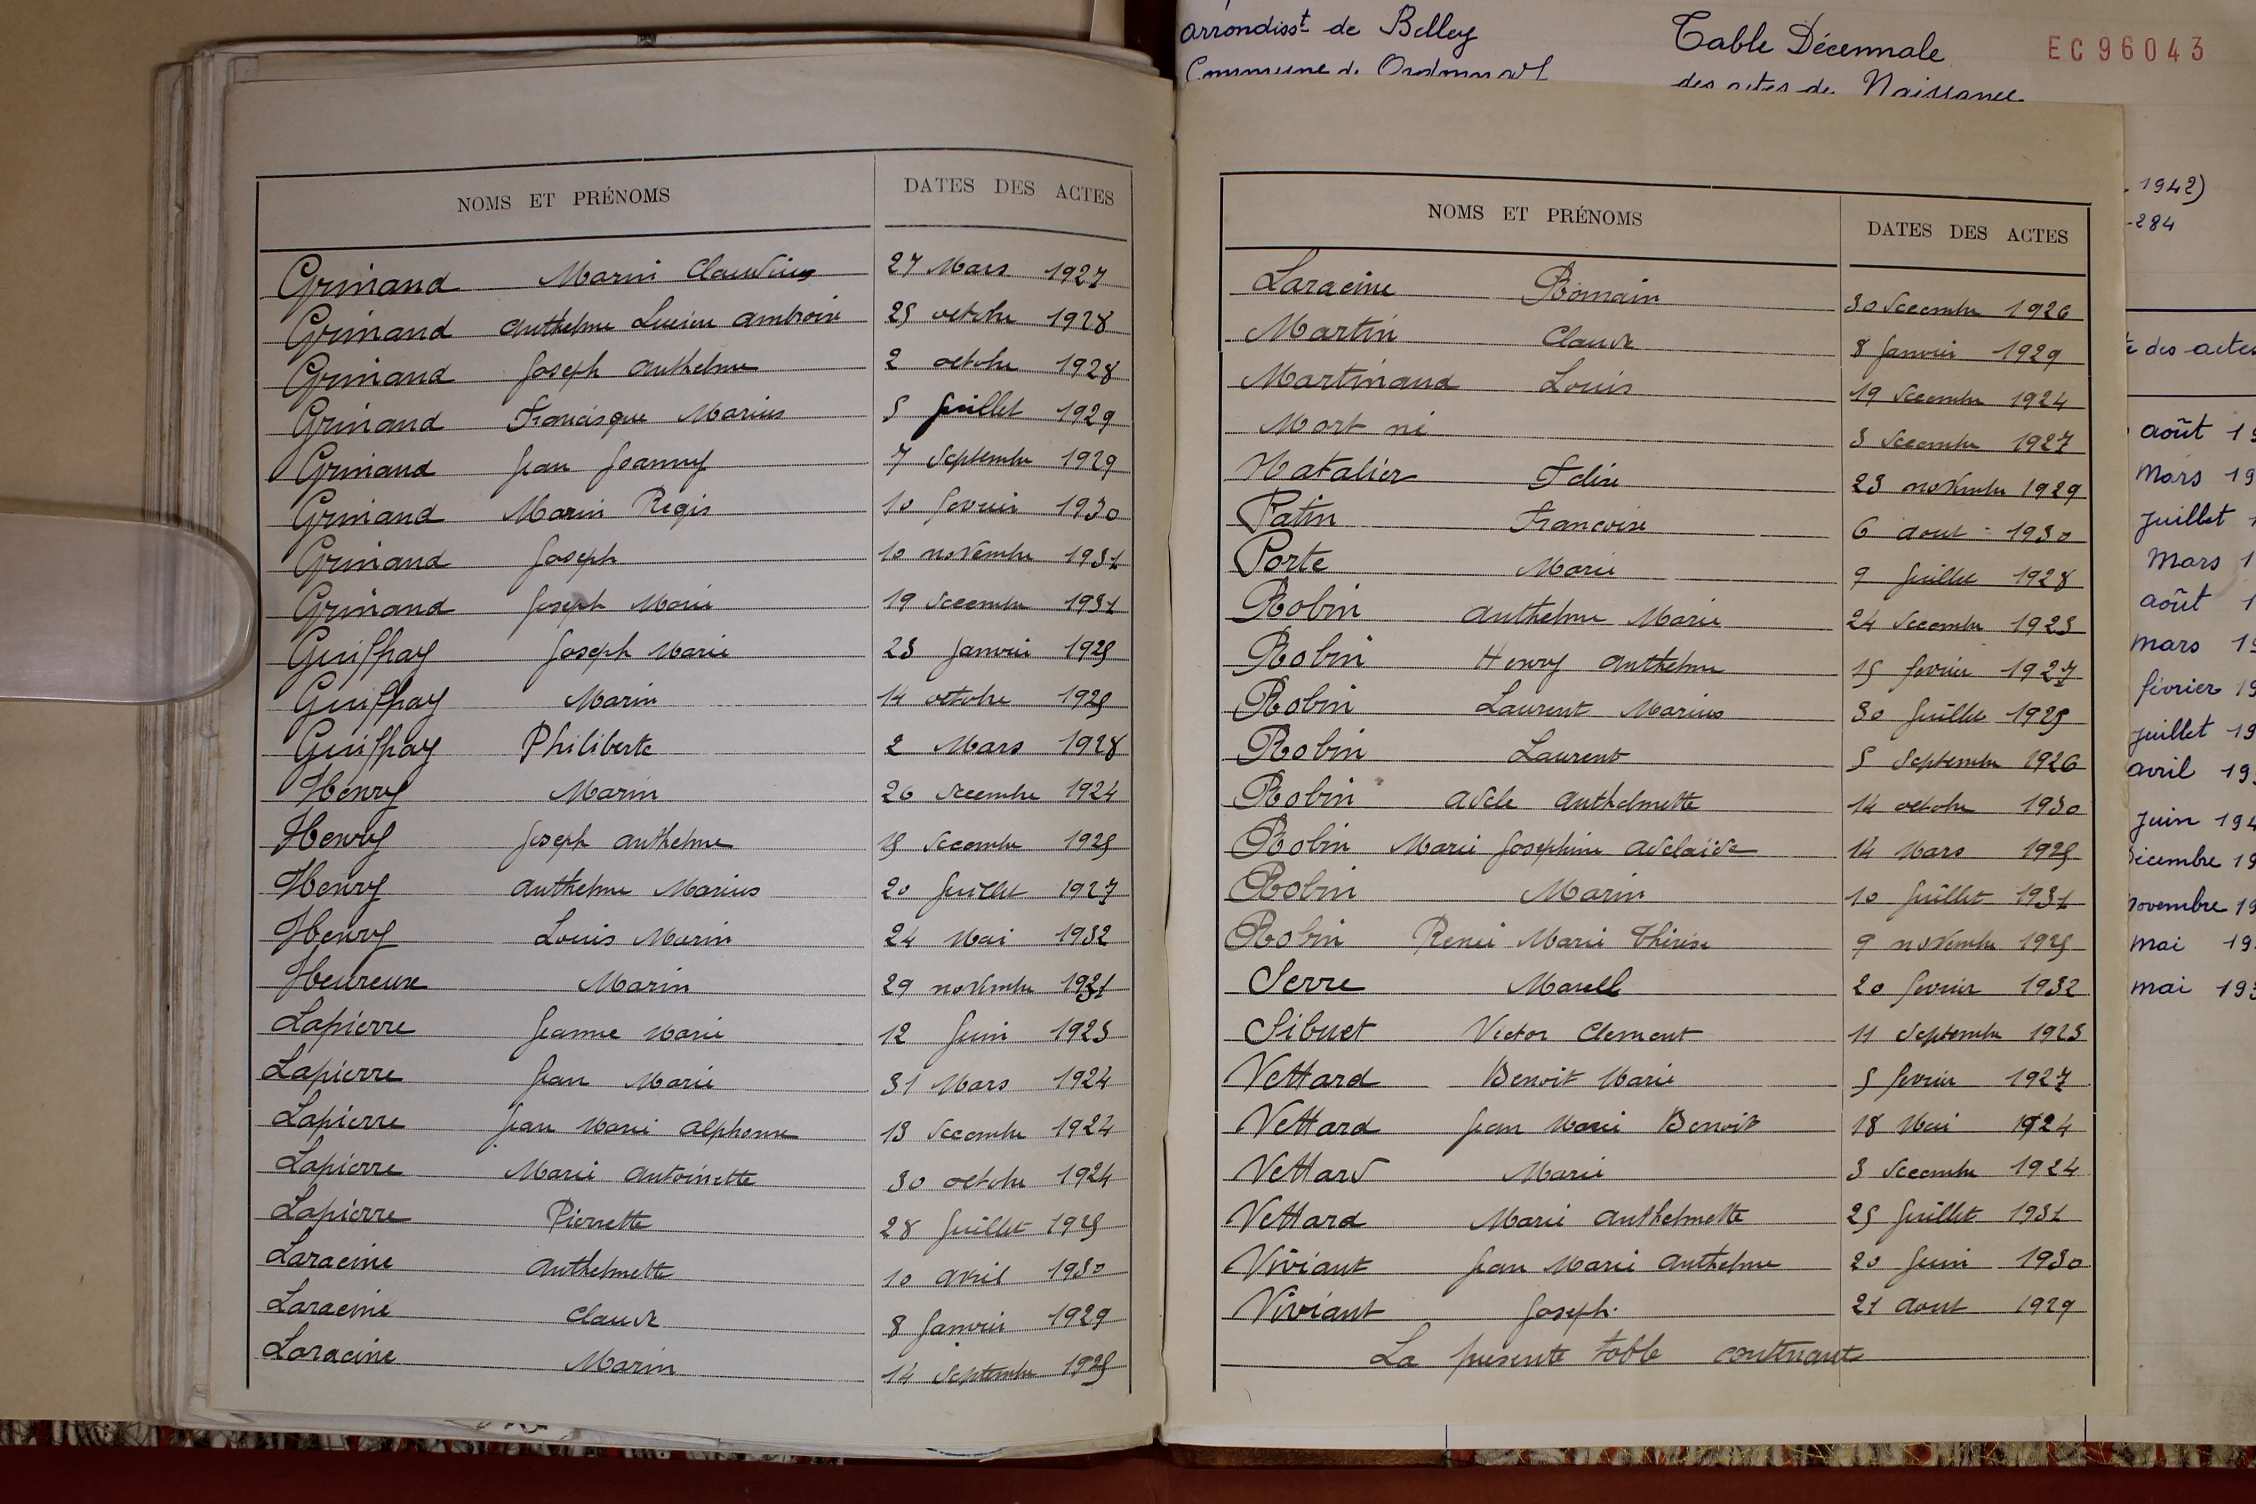 arrondisst de Belley
Table Décennale
EC96043
Commune d
des actes de Naissance
1942)
-284
des actes
août 19
Mars 19
juillet 1
Mars 1
août 1
mars 19
février 19
juillet 19
avril 19
juin 194
décembre 19
novembre 19
mai 19
mai 193
NOMS ET PRÉNOMS DATES DES ACTES
Grinand Marin Claudius 27 Mars 1927
Grinand Anthelme Lucien Ambroise 25 octobre 1928
Grinand Joseph Anthelme 2 octobre 1928
Grinand Francisque Marius 5 Juillet 1929
Grinand Jean Joanny 7 Septembre 1929
Grinand Marin Regis 10 fevrier 1930
Grinand Joseph 10 novembre 1931
Grinand Joseph Marie 19 Decembre 1931
Guiffray Joseph Marie 23 Janvier 1925
Guiffray Marin 14 octobre 1925
Guiffray Philiberte 2 Mars 1928
Henry Marin 26 Decembre 1924
Henry Joseph Anthelme 15 Decembre 1925
Henry Anthelme Marius 20 Juillet 1927
Henry Louis Marin 24 Mai 1932
Heureux Marin 29 novembre 1931
Lapierre Jeanne Marie 12 Juin 1923
Lapierre Jean Marie 31 Mars 1924
Lapierre Jean Marie Alphonse 13 Decembre 1924
Lapierre Marie Antoinette 30 octobre 1924
Lapierre Pierrette 28 Juillet 1925
Laracine Anthelmette 10 avril 1930
Laracine Claude 8 Janvier 1929
Laracine Marin 14 Septembre 1925
NOMS ET PRÉNOMS DATES DES ACTES
Laracine Romain 30 Decembre 1926
Martin Claude 8 Janvier 1929
Martinand Louis 19 Decembre 1924
Mort né 3 Decembre 1927
Natalier Felix 23 novembre 1929
Patin Francoise 6 aout 1930
Porte Marie 9 Juillet 1928
Robin Anthelme Marie 24 Decembre 1923
Robin Henry Anthelme 15 fevrier 1927
Robin Laurent Marius 30 Juillet 1925
Robin Laurent 5 Septembre 1926
Robin Adele Anthelmette 14 octobre 1930
Robin Marie Josephine Adelaide 14 Mars 1925
Robin Marin 10 Juillet 1931
Robin Renée Marie Thérèse 9 novembre 1925
Serre Marcell 20 fevrier 1932
Sibuet Victor Clement 11 Septembre 1923
Vettard Benoit Marie 5 fevrier 1927
Vettard Jean Marie Benoit 18 Mai 1924
Vettard Marie 3 Decembre 1924
Vettard Marie Anthelmette 25 Juillet 1931
Viviant Jean Marie Anthelme 20 Juin 1930
Viviant Joseph 21 Aout 1929
La presente table contenant